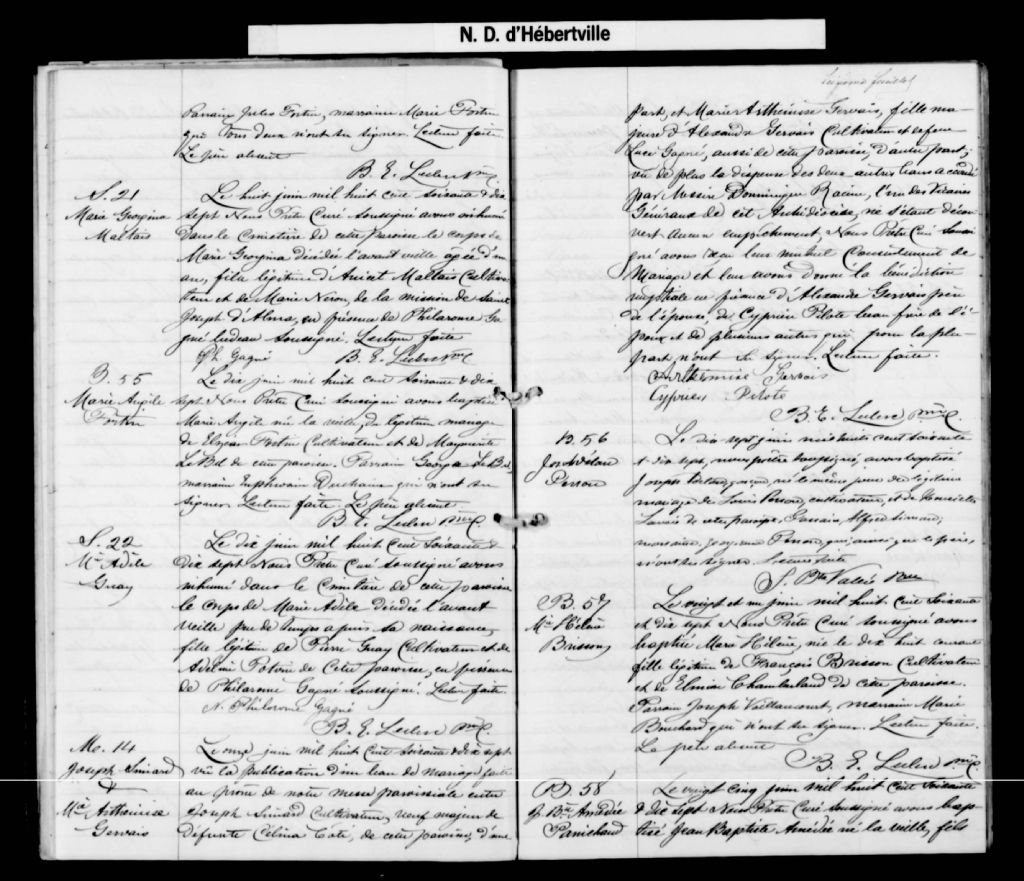 N. D. d'Hébertville
Parrain Jules Fortin, marraine Marie Fortin
qui tous deux n'ont su signer. Lecture faite
Le père absent
B. E. Leclerc Ptre C.
S. 21
Marie Georgina
Maltais
Le huit juin mil huit cent soixante & dix
sept Nous Prêtre Curé soussigné avons inhumé
dans le Cimetière de cette Paroisse le corps de
Marie Georgina décédée l'avant veille âgée d'un
an, fille légitime d'Anicet Maltais Cultiva-
teur et de Marie Neron, de la mission de Saint
Joseph d'Alma, en présence de Philarome Ga-
gné bedeau soussigné. Lecture faite
Ph. Gagné
B. E. Leclerc Ptre C
B. 55
Marie Angèle
Fortin
Le dix juin mil huit cent soixante & dix
sept Nous Prêtre Curé soussigné avons baptisé
Marie Angèle née la veille, du légitime mariage
de Elzear Fortin Cultivateur et de Marguerite
Le Bel de cette paroisse. Parrain George Le Bel,
marraine Euphrosine Duchaine qui n'ont su
signer. Lecture faite. Le père absent
B. E. Leclerc Ptre C.
S. 22
Mie Adèle
Guay
Le dix juin mil huit cent soixante &
dix sept Nous Prêtre Curé soussigné avons
inhumé dans le Cimetière de cette paroisse
le corps de Marie Adèle décédée l'avant
veille peu de temps après sa naissance,
fille légitime de Pierre Guay Cultivateur et de
Adeline Potvin de Cette paroisse, en présence
de Philarome Gagné soussigné. Lecture faite
N. Philorome Gagné
B. E. Leclerc Ptre C.
M. 14
Joseph Simard
&
Mie Arthemise
Gervais
Le onze juin mil huit Cent soixante & dix sept
vu la publication d'un ban de mariage faite
au prône de notre messe paroissiale entre
Joseph Simard Cultivateur, veuf majeur de
défunte Célina Coté, de cette paroisse, d'une
feuillet
part, et Marie Arthémise Gervais, fille ma-
jeure d'Alexandre Gervais Cultivateur et de feue
Luce Gagné, aussi de cette paroisse, d'autre part;
vu de plus la dispense des deux autres bans accordée
par Messire Dominique Racine, l'un des Vicaires
Généraux de cet Archidiocèse, ne s'étant décou-
vert aucun empêchement Nous Prêtre Curé soussi-
gné avons reçu leur mutuel Consentement de
Mariage et leur avons donné la bénédiction
nuptiale en présence d'Alexandre Gervais père
de l'épouse, de Cyprien Pilote beau frère de l'é-
poux et de plusieurs autres qui pour la plu-
part n'ont su signer. Lecture faite.
Arthémise Gervais
Cyprien Pilote
B. E. Leclerc Ptre C
B. 56
Jos Adélard
Perron
Le dix sept juin mil huit cent soixante
& dix sept, nous prêtre soussigné, avons baptisé
Joseph né le même jour du légitime
mariage de Louis Perron, cultivateur, et de Henriette
de cette paroisse. Parrain, Alfred Simard,
marraine, Perron, qui, ainsi que le père,
n'ont su signer. Lecture faite
J. Bte Vallée Ptre
B. 57
Mie Hélène
Brisson
Le vingt et un juin mil huit Cent soixante
et dix sept Nous Prêtre Curé soussigné avons
baptisé Marie Hélène, née le dix huit courant
fille légitime de François Brisson Cultivateur
et de Elmire Chamberland de cette paroisse.
Parrain Joseph Vaillancourt, marraine Marie
Bouchard qui n'ont su signer. Lecture faite.
Le père absent
B. E. Leclerc Ptre C
B. 58
J. Bte Amédée
Panichaud
Le vingt cinq juin mil huit Cent soixante
& dix sept Nous Prêtre Curé soussigné avons bap-
tisé Jean Baptiste Amédée né la veille, fils